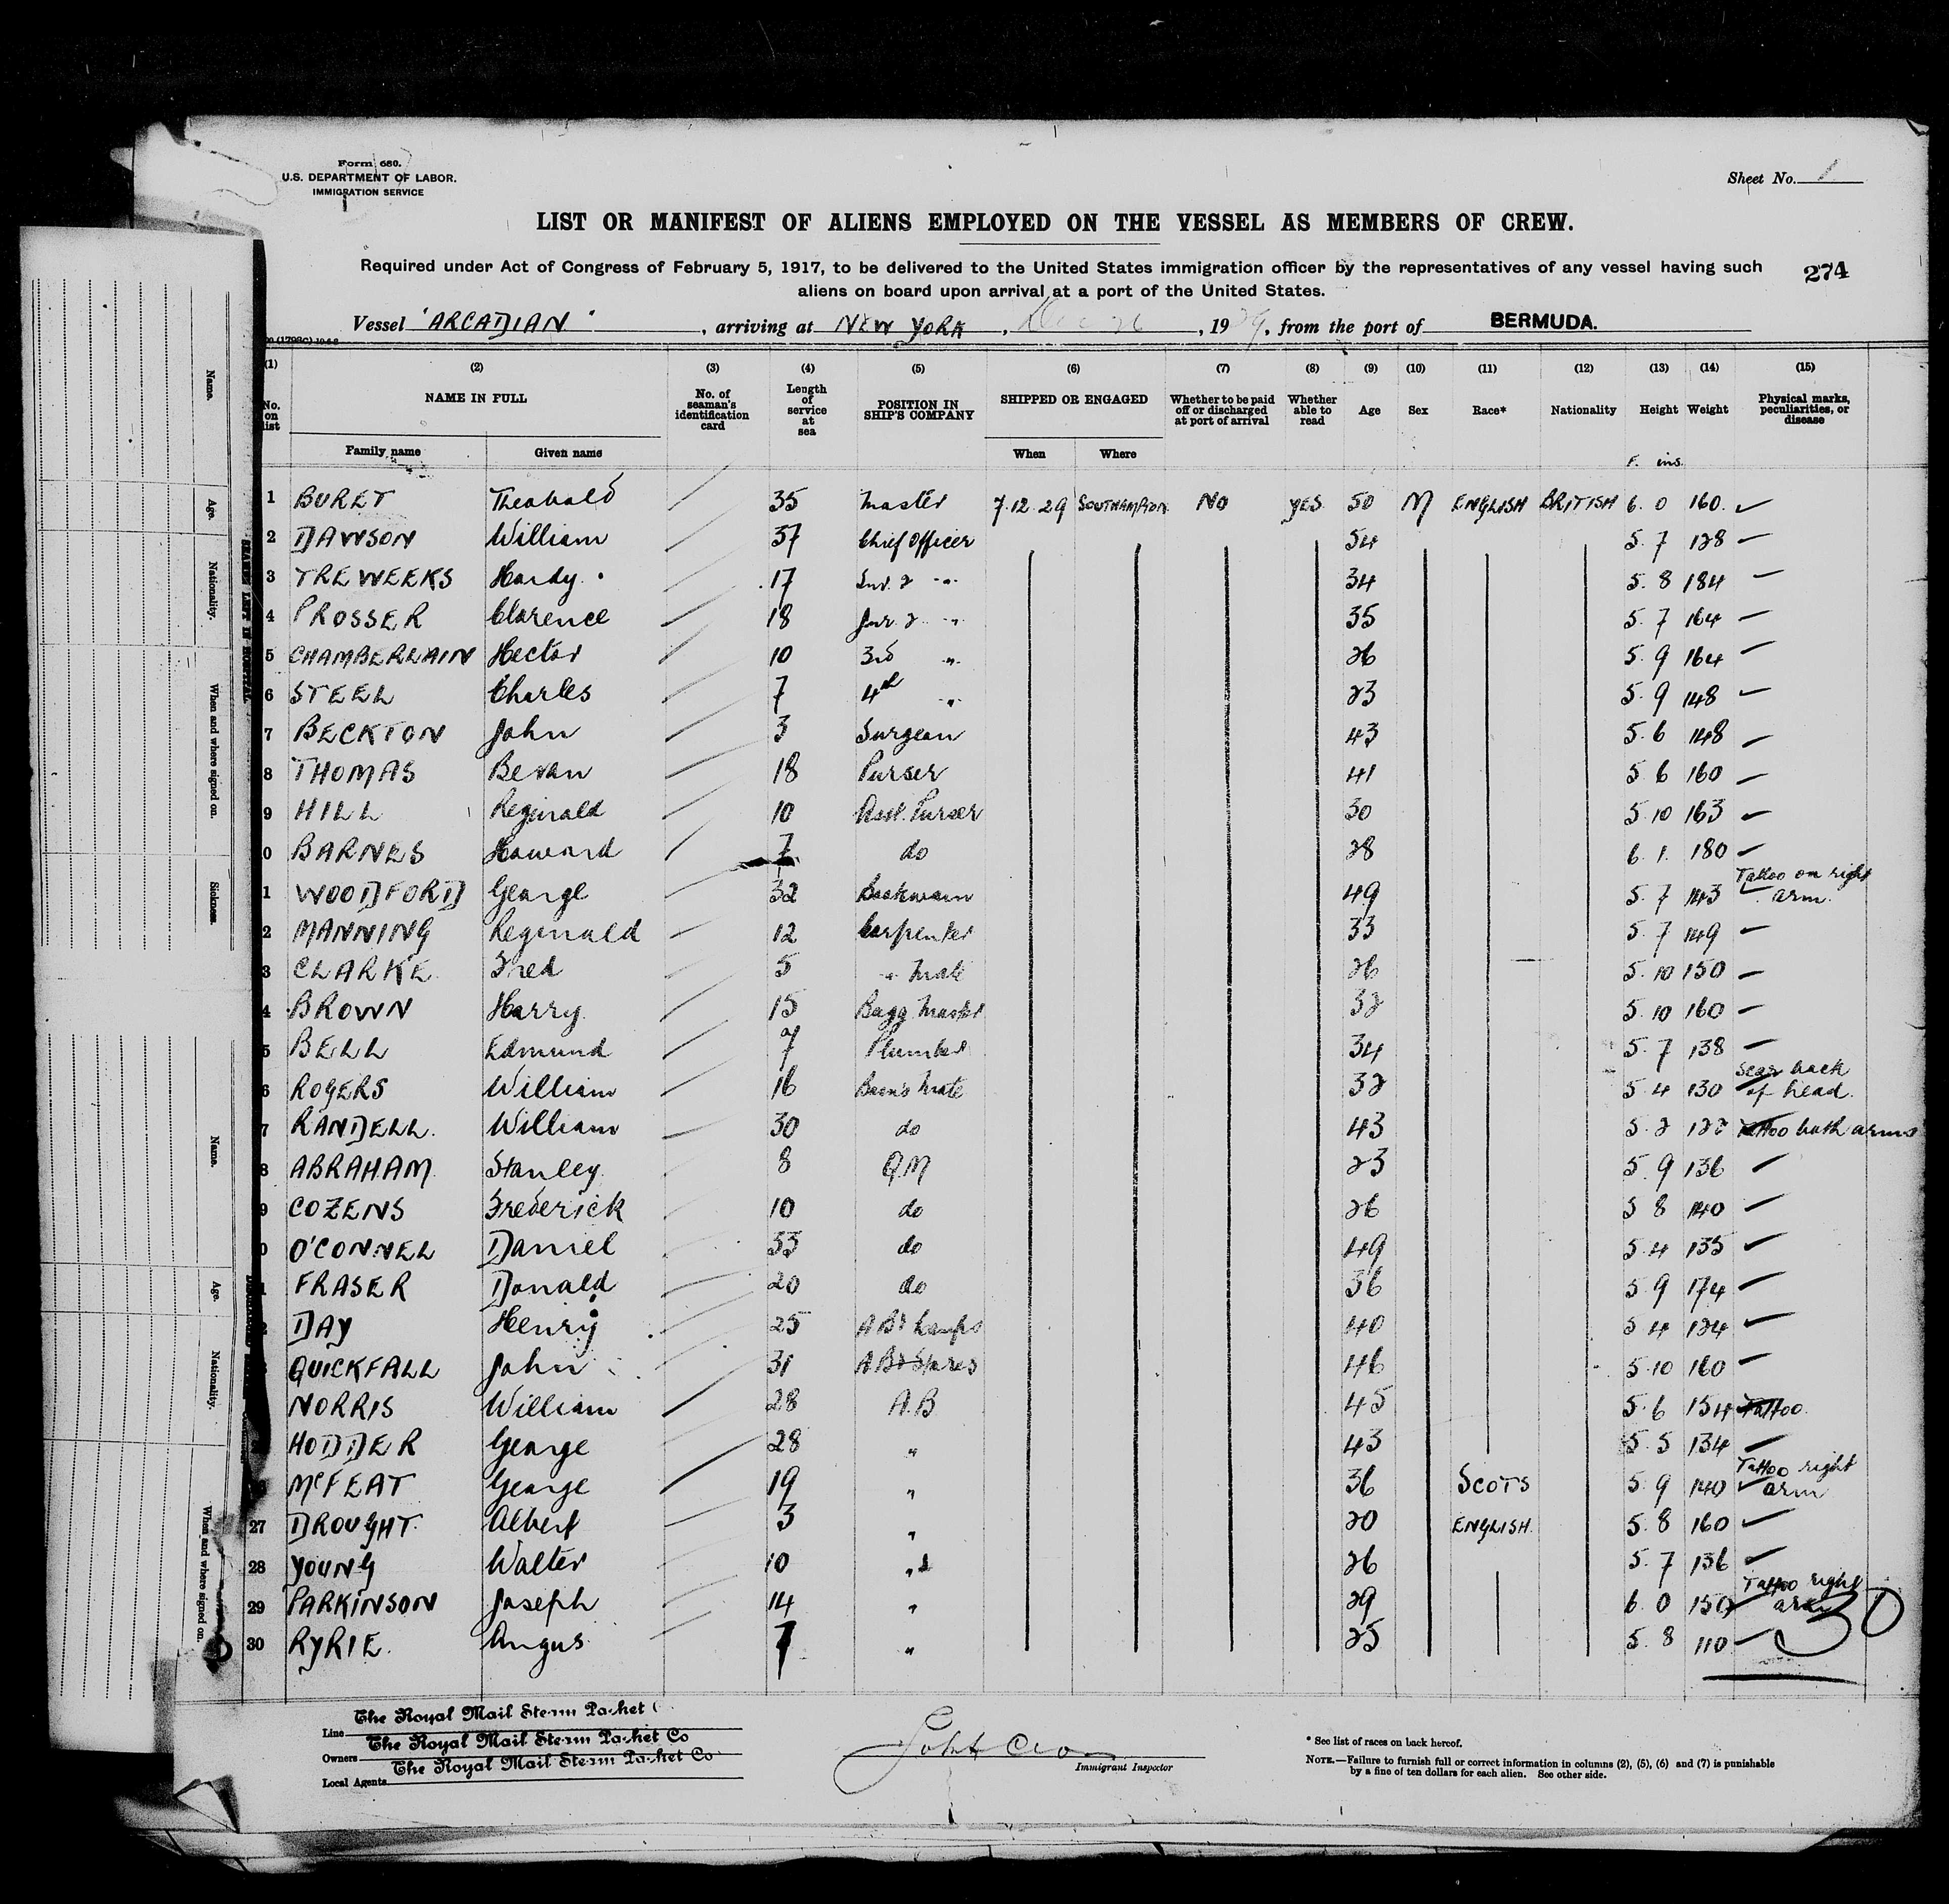 Form 680.
U.S. DEPARTMENT OF LABOR.
IMMIGRATION SERVICE
Sheet No. 1
LIST OR MANIFEST OF ALIENS EMPLOYED ON THE VESSEL AS MEMBERS OF CREW.
Required under Act of Congress of February 5, 1917, to be delivered to the United States immigration officer by the representatives of any vessel having such
aliens on board upon arrival at a port of the United States.
274
Vessel "ARCADIAN", arriving at NEW YORK, Dec 26, 1929, from the port of BERMUDA.
(1) (2) (3) (4) (5) (6) (7) (8) (9) (10) (11) (12) (13) (14) (15)
No. on list NAME IN FULL No. of seaman's identification card Length of service at sea POSITION IN SHIP'S COMPANY SHIPPED OR ENGAGED Whether to be paid off or discharged at port of arrival Whether able to read Age Sex Race* Nationality Height Weight Physical marks, peculiarities, or disease
Family name Given name When Where F. ins.
1 BURET Theobald 35 Master 7.12.29 SOUTHAMPTON NO YES 50 M ENGLISH BRITISH 6. 0 160.
2 DAWSON William 37 Chief Officer 54 5. 7 128
3 TREWEEKS Hardy 17 Snr. 2 -"- 34 5. 8 184
4 PROSSER Clarence 18 Jnr. 2 -"- 35 5. 7 164
5 CHAMBERLAIN Hector 10 3rd -"- 26 5. 9 164
6 STEEL Charles 7 4th -"- 23 5. 9 148
7 BECKTON John 3 Surgeon 43 5. 6 148
8 THOMAS Bevan 18 Purser 41 5 6 160
9 HILL Reginald 10 Asst. Purser 30 5 10 163
0 BARNES Howard 7 do 28 6. 1. 180
1 WOODFORD George 32 Boatswain 49 5. 7 143 Tattoo on right arm.
2 MANNING Reginald 12 Carpenter 33 5. 7 149
3 CLARKE Fred 5 -"- Mate 26 5. 10 150
4 BROWN Harry 15 Bagg Master 32 5. 10 160
5 BELL Edmund 7 Plumber 34 5. 7 138
6 ROGERS William 16 Bosn's Mate 32 5. 4 130 Scar back of head.
7 RANDELL. William 30 do 43 5. 2 122 Tattoo both arms
8 ABRAHAM Stanley 8 Q.M 23 5. 9 136
9 COZENS Frederick 10 do 26 5 8 140
0 O'CONNEL Daniel 33 do 49 5. 4 135
1 FRASER Donald 20 do 36 5 9 174
DAY Henry 25 AB & Lamps 40 5 4 124
QUICKFALL John 31 AB & Stores 46 5. 10 160
NORRIS William 28 A.B 45 5. 6 154 Tattoo
HODDER George 28 " 43 5. 5 134
McFEAT George 19 " 36 SCOTS 5. 9 140 Tattoo right arm
27 DROUGHT. Albert 3 " 20 ENGLISH. 5. 8 160
28 YOUNG Walter 10 " 26 5. 7 136
29 PARKINSON Joseph 14 " 29 6. 0 150 Tattoo right arm
30 RYRIE. Angus 7 " 25 5. 8 110
30
Line The Royal Mail Steam Packet C
Owners The Royal Mail Steam Packet Co
Local Agents The Royal Mail Steam Packet Co
Immigrant Inspector
* See list of races on back hereof.
NOTE.—Failure to furnish full or correct information in columns (2), (5), (6) and (7) is punishable
by a fine of ten dollars for each alien. See other side.
Name.
Age.
Nationality.
When and where signed on.
Sickness.
Name.
Age.
Nationality.
When and where signed on.